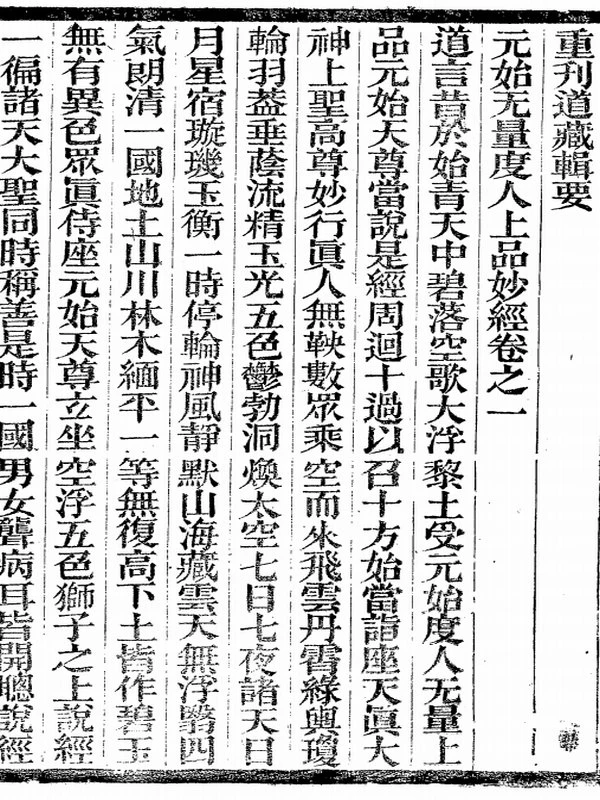 重刊道藏輯要
元始无量度人上品妙經卷之一
道言昔於始青天中碧落空歌大浮黎土受元始度人无量上
品元始天尊當說是經周迴十過以召十方始當詣座天眞大
神上聖高尊妙行眞人無鞅數眾乘空而來飛雲丹霄綠輿瓊
輪羽蓋垂蔭流精玉光五色鬱勃洞煥太空七日七夜諸天日
月星宿璇璣玉衡一時停輪神風靜默山海藏雲天無浮翳四
氣朗清一國地土山川林木緬平一等無復高下土皆作碧玉
無有異色眾眞侍座元始天尊玄坐空浮五色獅子之上說經
一徧諸天大聖同時稱善是時一國男女聾病耳皆開聰說經